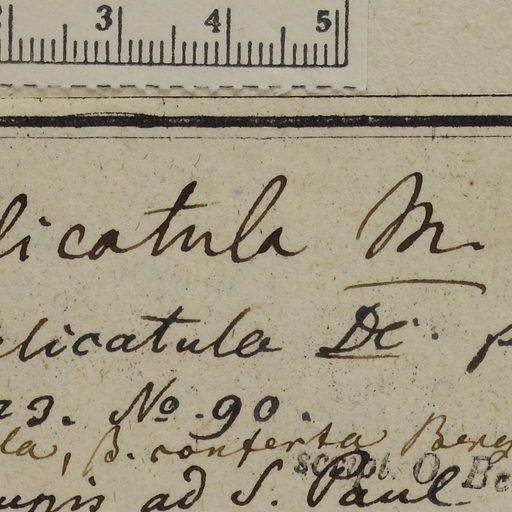 3 4 5
licatula M.
elicatula DC. p
23. No. 90.
la, β. conferta Berg
script. O. Be
rupis ad S. Paul